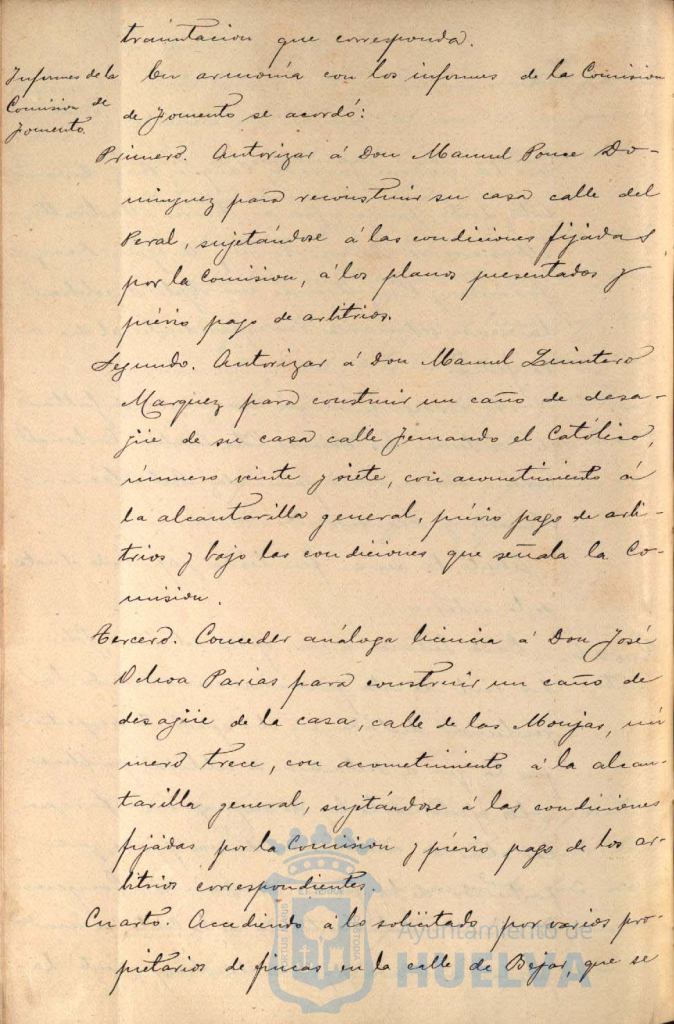 tramitacion que corresponda.
Informes de la
Comision de
Fomento.
En armonía con los informes de la Comision
de Fomento se acordó:
Primero. Autorizar á Don Manuel Ponce Do-
minguez para reconstruir su casa calle del
Peral, sujetándose á las condiciones fijadas
por la Comision, á los planos presentados y
prévio pago de arbitrios.
Segundo. Autorizar á Don Manuel Quintero
Marquez para construir un caño de desa-
güe de su casa calle Fernando el Católico,
número veinte y siete, con acometimiento á
la alcantarilla general, prévio pago de arbi-
trios y bajo las condiciones que señala la Co-
mision.
Tercero. Conceder análoga licencia á Don José
Ochoa Parias para construir un caño de
desagüe de la casa, calle de las Monjas, nú
mero trece, con acometimiento á la alcan-
tarilla general, sujetándose á las condiciones
fijadas por la Comision y prévio pago de los ar-
bitrios correspondientes.
Cuarto. Accediendo á lo solicitado por varios pro-
pietarios de fincas en la calle de Bejar, que se
Ayuntamiento de
HUELVA